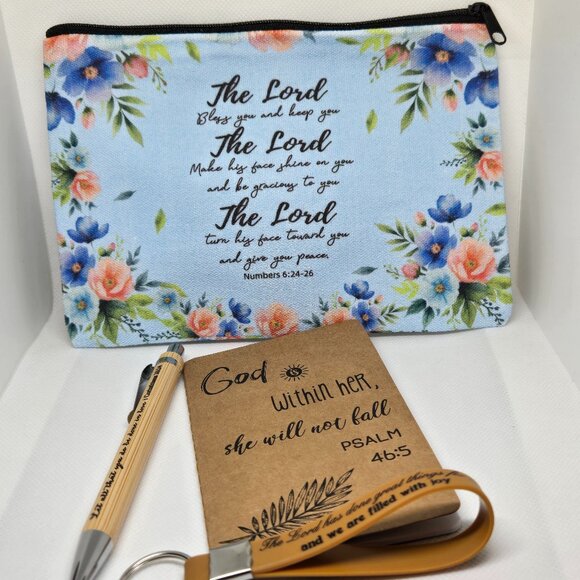 The Lord
Bless you and keep you
The Lord
Make his face shine on you
and be gracious to you
The Lord
turn his face toward you
and give you peace.
Numbers 6:24-26
God is
within her,
she will not fall
PSALM
46:5
Let all that you do be done in love
The Lord has done great things
and we are filled with joy